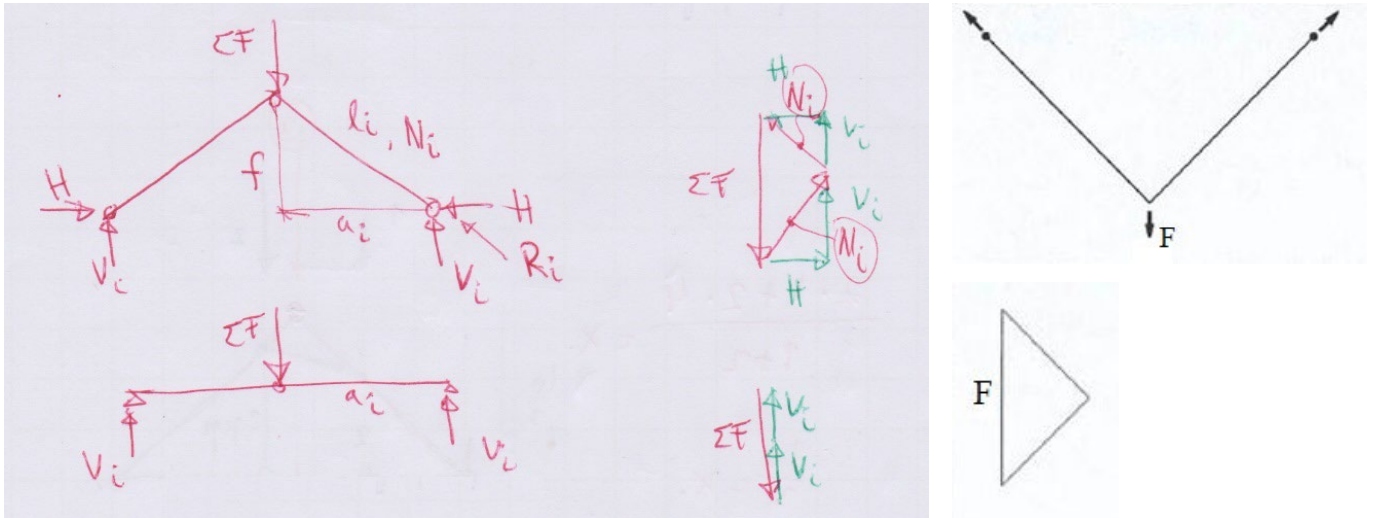 ΣF
lᵢ, Nᵢ
f
H
H
aᵢ
Vᵢ
Vᵢ
Rᵢ
ΣF
aᵢ
Vᵢ
Vᵢ
H
Nᵢ
Vᵢ
ΣF
Vᵢ
Nᵢ
H
ΣF
Vᵢ
Vᵢ
F
F